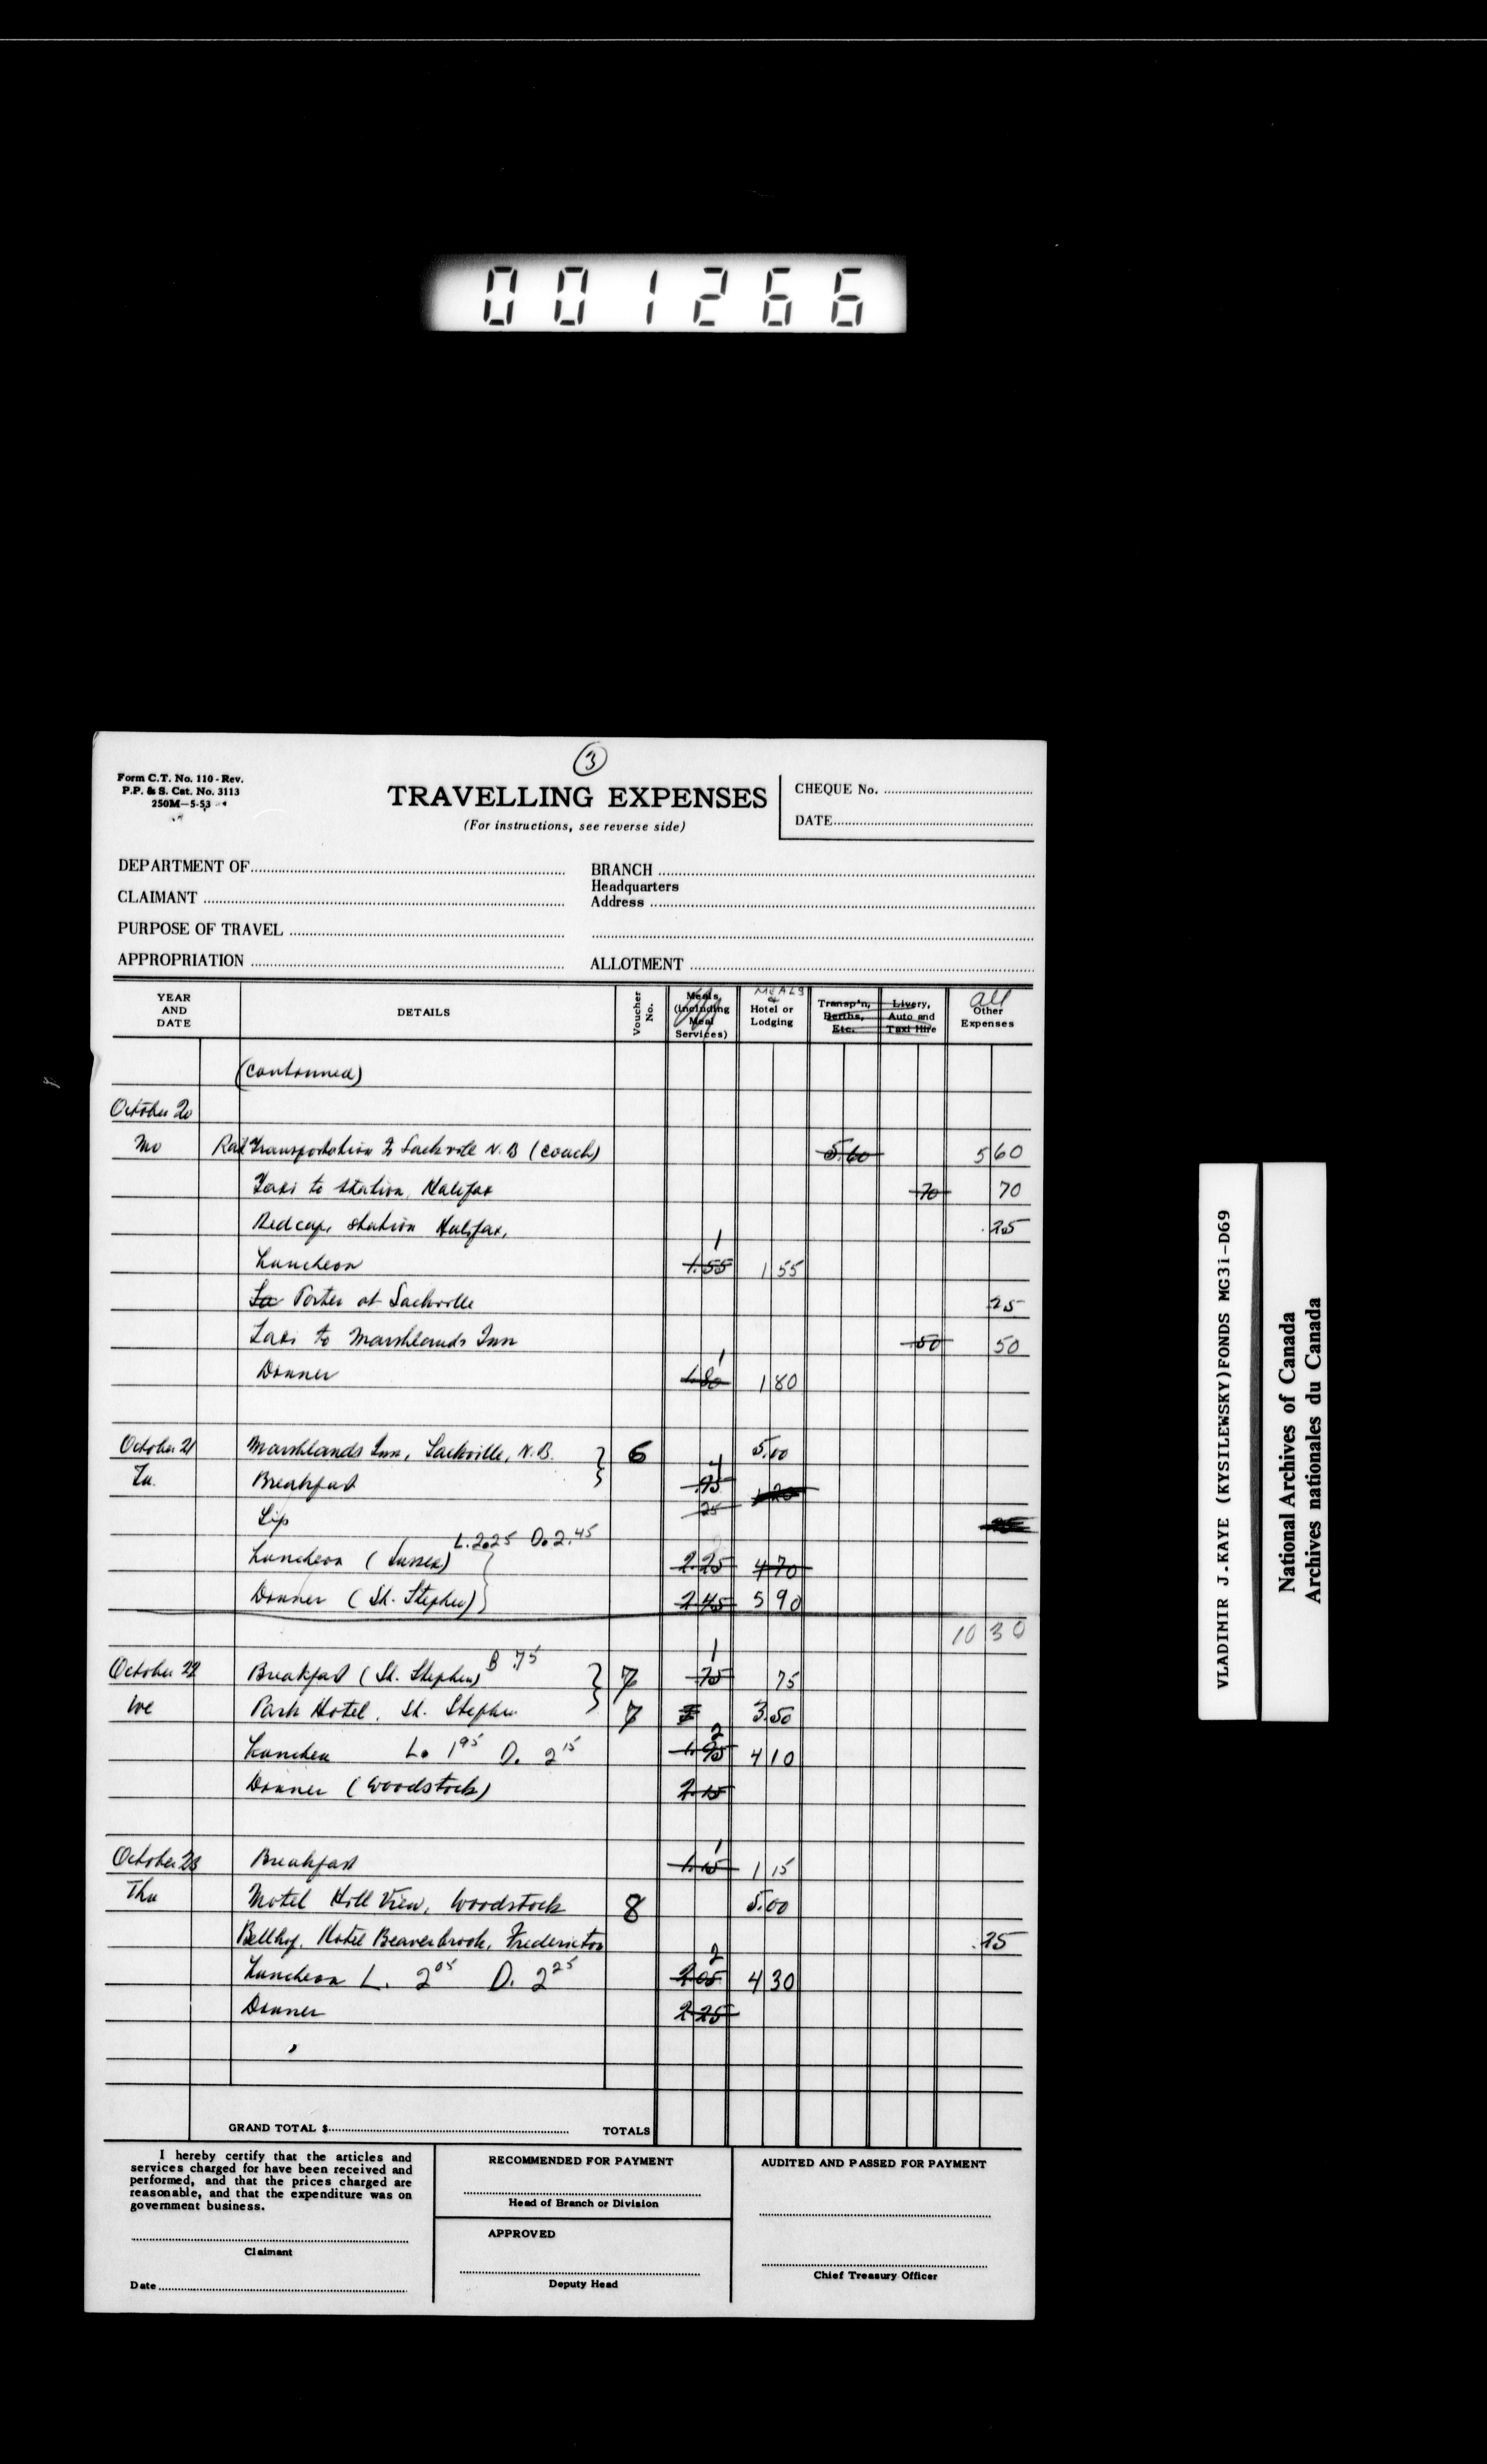 001266
3
Form C.T. No. 110 - Rev.
P.P. & S. Cat. No. 3113
250M—5-53
TRAVELLING EXPENSES
(For instructions, see reverse side)
CHEQUE No.
DATE
DEPARTMENT OF
BRANCH
Headquarters
CLAIMANT
Address
PURPOSE OF TRAVEL
APPROPRIATION
ALLOTMENT
YEAR AND DATE
DETAILS
Voucher No.
Meals (Including Meal Services)
MEALS & Hotel or Lodging
Transp'n, Berths, Etc.
Livery, Auto and Taxi Hire
all Other Expenses
(continued)
October 20
Mo Rail Transportation to Sackville N.B (coach) 5.60 5 60
Taxi to station, Halifax 70 70
Redcap, station Halifax, .25
Luncheon 1 1.55 1 55
Porter at Sackville .25
Taxi to Marshlands Inn .50 50
Dinner 1 1.80 1 80
October 21 Marshlands Inn, Sackville, N.B. 6 5.00
Tu. Breakfast .95
Tip 25
L. 2.25 D. 2.45
Luncheon (Sussex) 2.25 4 70
Dinner (St. Stephen) 2.45 5 90
10 30
October 22 Breakfast (St. Stephen) B .75 7 1 .75 75
We Park Hotel, St. Stephen 7 3.50
Luncheon L. 1 95 D. 2 15 2 1.95 4 10
Dinner (Woodstock) 2.15
October 23 Breakfast 1 1.15 1 15
Thu Motel Hill View, Woodstock 8 5.00
Bellboy, Hotel Beaverbrook, Fredericton .25
Luncheon L. 2 05 D. 2 25 2 2.05 4 30
Dinner 2.25
GRAND TOTAL $ TOTALS
I hereby certify that the articles and
services charged for have been received and
performed, and that the prices charged are
reasonable, and that the expenditure was on
government business.
Claimant
Date
RECOMMENDED FOR PAYMENT
Head of Branch or Division
APPROVED
Deputy Head
AUDITED AND PASSED FOR PAYMENT
Chief Treasury Officer
VLADIMIR J.KAYE (KYSILEWSKY)FONDS MG31-D69
National Archives of Canada
Archives nationales du Canada